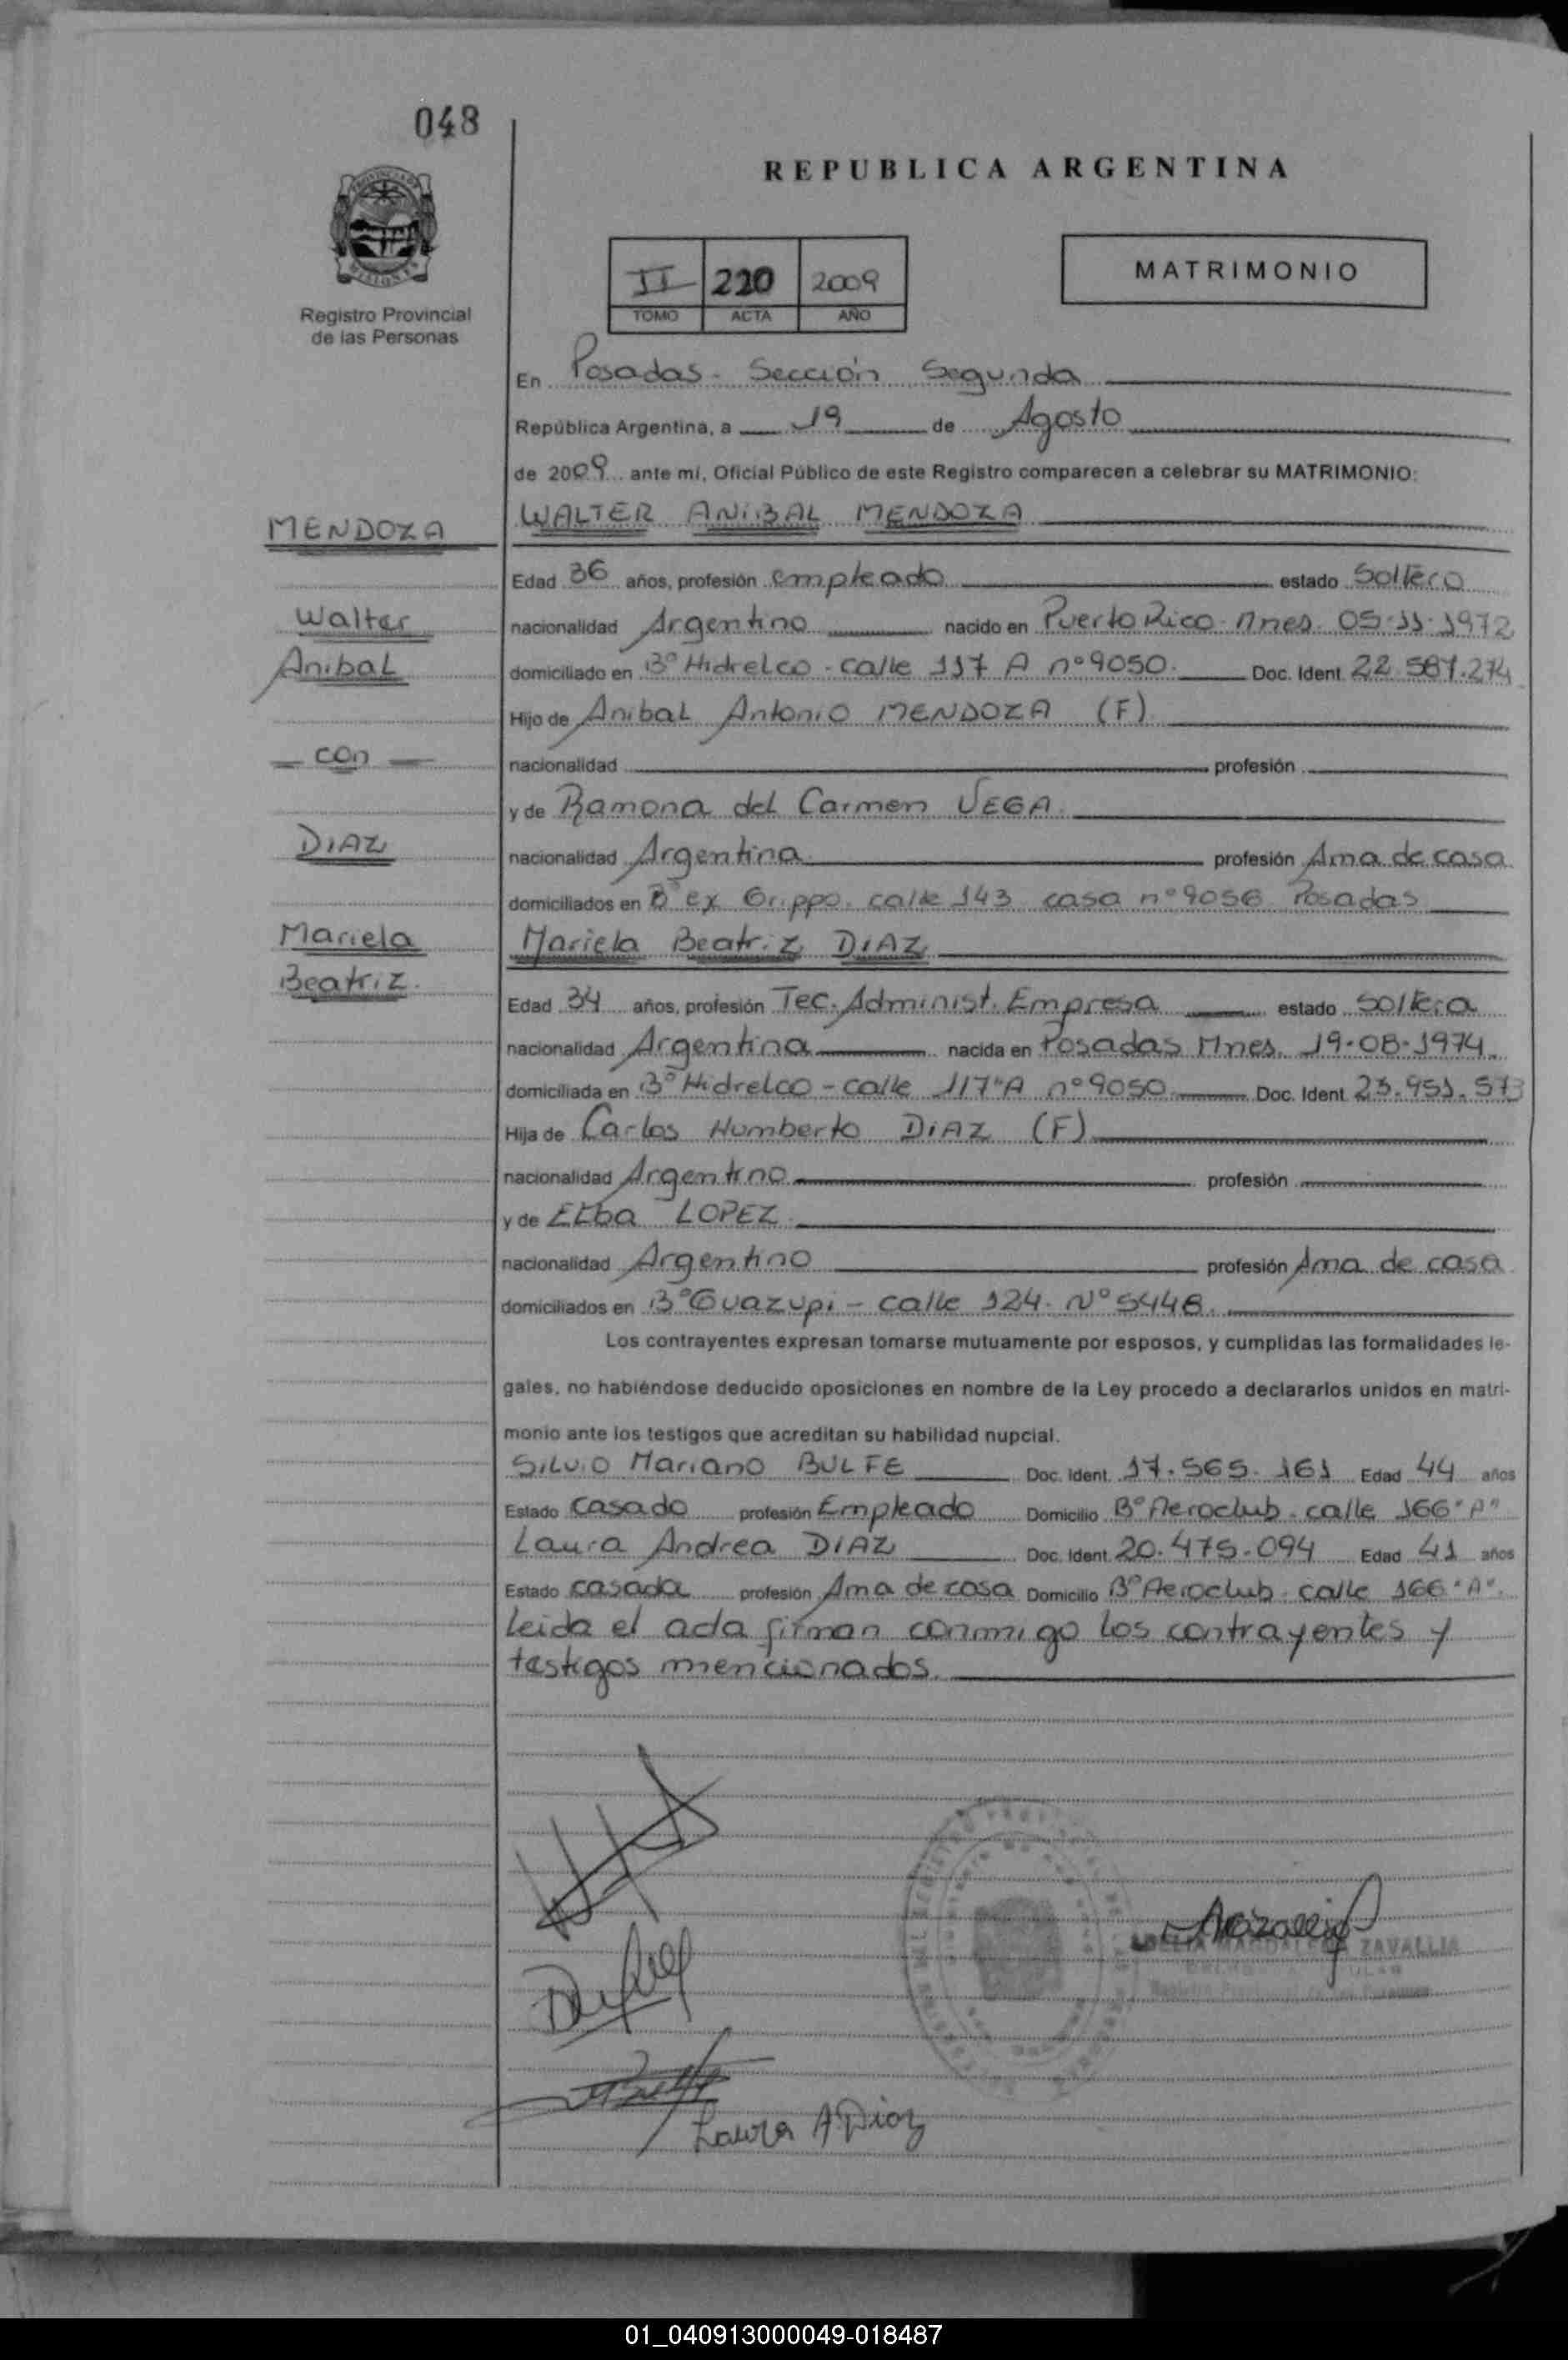 048
REPUBLICA ARGENTINA
PROVINCIA DE MISIONES
Registro Provincial
de las Personas
II 220 2009
TOMO ACTA AÑO
MATRIMONIO
En Posadas - Sección Segunda
República Argentina, a 19 de Agosto
de 2009 ante mí, Oficial Público de este Registro comparecen a celebrar su MATRIMONIO:
MENDOZA
WALTER ANIBAL MENDOZA
Edad 36 años, profesión empleado estado Soltero
Walter
nacionalidad Argentino nacido en Puerto Rico - Mnes. 05-11-1972
Anibal
domiciliado en Bº Hidrelco - calle 117 A nº 9050. Doc. Ident. 22.587.274
Hijo de Anibal Antonio MENDOZA (F)
con
nacionalidad profesión
y de Ramona del Carmen VEGA.
DIAZ
nacionalidad Argentina profesión Ama de casa
domiciliados en Bº ex Grippo. calle 143 casa nº 9056 Posadas
Mariela
Mariela Beatriz DIAZ
Beatriz.
Edad 34 años, profesión Tec. Administ. Empresa estado Soltera
nacionalidad Argentina nacida en Posadas Mnes. 19-08-1974.
domiciliada en Bº Hidrelco - calle 117"A nº 9050 Doc. Ident. 23.951.573
Hija de Carlos Humberto DIAZ (F)
nacionalidad Argentino profesión
y de Elba LOPEZ.
nacionalidad Argentino profesión Ama de casa
domiciliados en Bº Guazupi - calle 124. Nº 5448.
Los contrayentes expresan tomarse mutuamente por esposos, y cumplidas las formalidades le-
gales, no habiéndose deducido oposiciones en nombre de la Ley procedo a declararlos unidos en matri-
monio ante los testigos que acreditan su habilidad nupcial.
Silvio Mariano BULFE Doc. Ident. 17.565.161 Edad 44 años
Estado casado profesión Empleado Domicilio Bº Aeroclub - calle 166"A"
Laura Andrea DIAZ Doc. Ident. 20.475.094 Edad 41 años
Estado casada profesión Ama de casa Domicilio Bº Aeroclub - calle 166"A".
Leida el acta firman conmigo los contrayentes y
testigos mencionados.
MAGDALENA ZAVALLIA
Laura A Diaz
01_040913000049-018487